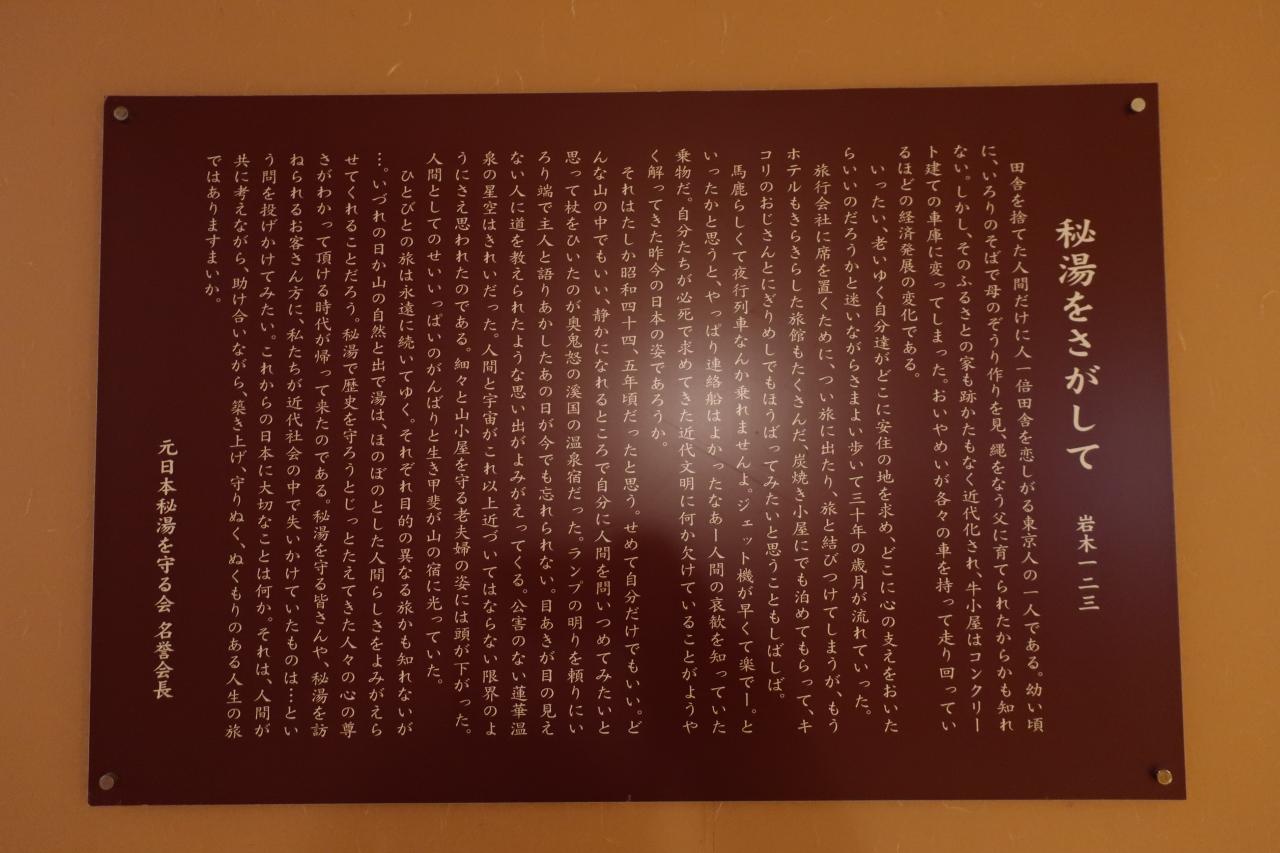 秘湯をさがして　岩木一二三
田舎を捨てた人間だけに人一倍田舎を恋しがる東京人の一人である。幼い頃
に、いろりのそばで母のぞうり作りを見、縄をなう父に育てられたからかも知れ
ない。しかし、そのふるさとの家も跡かたもなく近代化され、牛小屋はコンクリー
ト建ての車庫に変ってしまった。おいやめいが各々の車を持って走り回ってい
るほどの経済発展の変化である。
いったい、老いゆく自分達がどこに安住の地を求め、どこに心の支えをおいた
らいいのだろうかと迷いながらさまよい歩いて三十年の歳月が流れていった。
旅行会社に席を置くために、つい旅に出たり、旅と結びつけてしまうが、もう
ホテルもきらきらした旅館もたくさんだ、炭焼き小屋にでも泊めてもらって、キ
コリのおじさんとにぎりめしでもほうばってみたいと思うこともしばしば。
馬鹿らしくて夜行列車なんか乗れませんよ。ジェット機が早くて楽でー。と
いったかと思うと、やっぱり連絡船はよかったなあー人間の哀歓を知っていた
乗物だ。自分たちが必死で求めてきた近代文明に何か欠けていることがようや
く解ってきた昨今の日本の姿であろうか。
それはたしか昭和四十四、五年頃だったと思う。せめて自分だけでもいい。ど
んな山の中でもいい、静かになれるところで自分に人間を問いつめてみたいと
思って杖をひいたのが奥鬼怒の渓国の温泉宿だった。ランプの明りを頼りにい
ろり端で主人と語りあかしたあの日が今でも忘れられない。目あきが目の見え
ない人に道を教えられたような思い出がよみがえってくる。公害のない蓮華温
泉の星空はきれいだった。人間と宇宙がこれ以上近づいてはならない限界のよ
うにさえ思われたのである。細々と山小屋を守る老夫婦の姿には頭が下がった。
人間としてのせいいっぱいのがんばりと生き甲斐が山の宿に光っていた。
ひとびとの旅は永遠に続いてゆく。それぞれ目的の異なる旅かも知れないが
…。いづれの日か山の自然と出で湯は、ほのぼのとした人間らしさをよみがえら
せてくれることだろう。秘湯で歴史を守ろうとじっとたえてきた人々の心の尊
さがわかって頂ける時代が帰って来たのである。秘湯を守る皆さんや、秘湯を訪
ねられるお客さん方に、私たちが近代社会の中で失いかけていたものは…とい
う問を投げかけてみたい。これからの日本に大切なことは何か。それは、人間が
共に考えながら、助け合いながら、築き上げ、守りぬく、ぬくもりのある人生の旅
ではありますまいか。
元日本秘湯を守る会 名誉会長